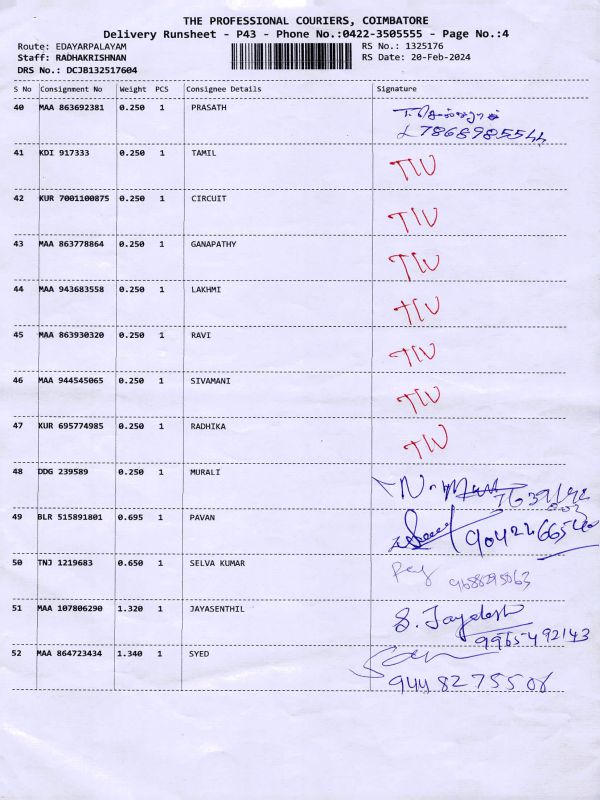 THE PROFESSIONAL COURIERS, COIMBATORE
Delivery Runsheet - P43 - Phone No.:0422-3505555 - Page No.:4
Route: EDAYARPALAYAM RS No.: 1325176
Staff: RADHAKRISHNAN RS Date: 20-Feb-2024
DRS No.: DCJB132517604
S No Consignment No Weight PCS Consignee Details Signature
40 MAA 863692381 0.250 1 PRASATH
7868985544
41 KDI 917333 0.250 1 TAMIL TIV
42 KUR 7001100875 0.250 1 CIRCUIT TIV
43 MAA 863778864 0.250 1 GANAPATHY TIV
44 MAA 943683558 0.250 1 LAKHMI TIV
45 MAA 863930320 0.250 1 RAVI TIV
46 MAA 944545065 0.250 1 SIVAMANI TIV
47 KUR 695774985 0.250 1 RADHIKA TIV
48 DDG 239589 0.250 1 MURALI
49 BLR 515891801 0.695 1 PAVAN 9042266540
50 TNJ 1219683 0.650 1 SELVA KUMAR
51 MAA 107806290 1.320 1 JAYASENTHIL S. Jaydesh
9965492143
52 MAA 864723434 1.340 1 SYED
9448275508